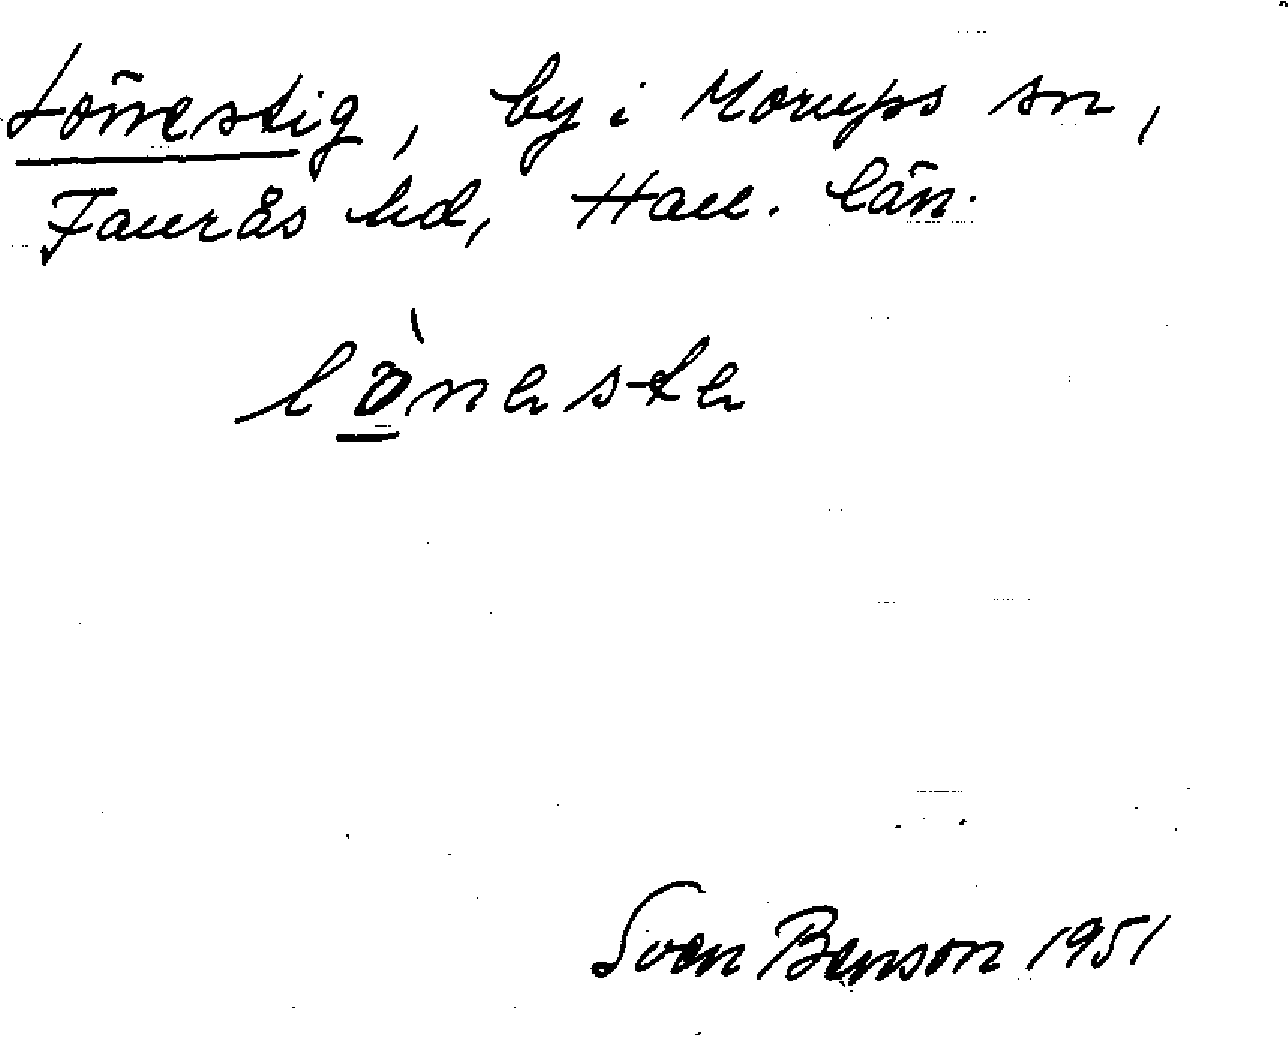 Lönestig, by i Morups sn,
Faurås hd, Hall. län.
lö̀neste
Sven Benson 1951